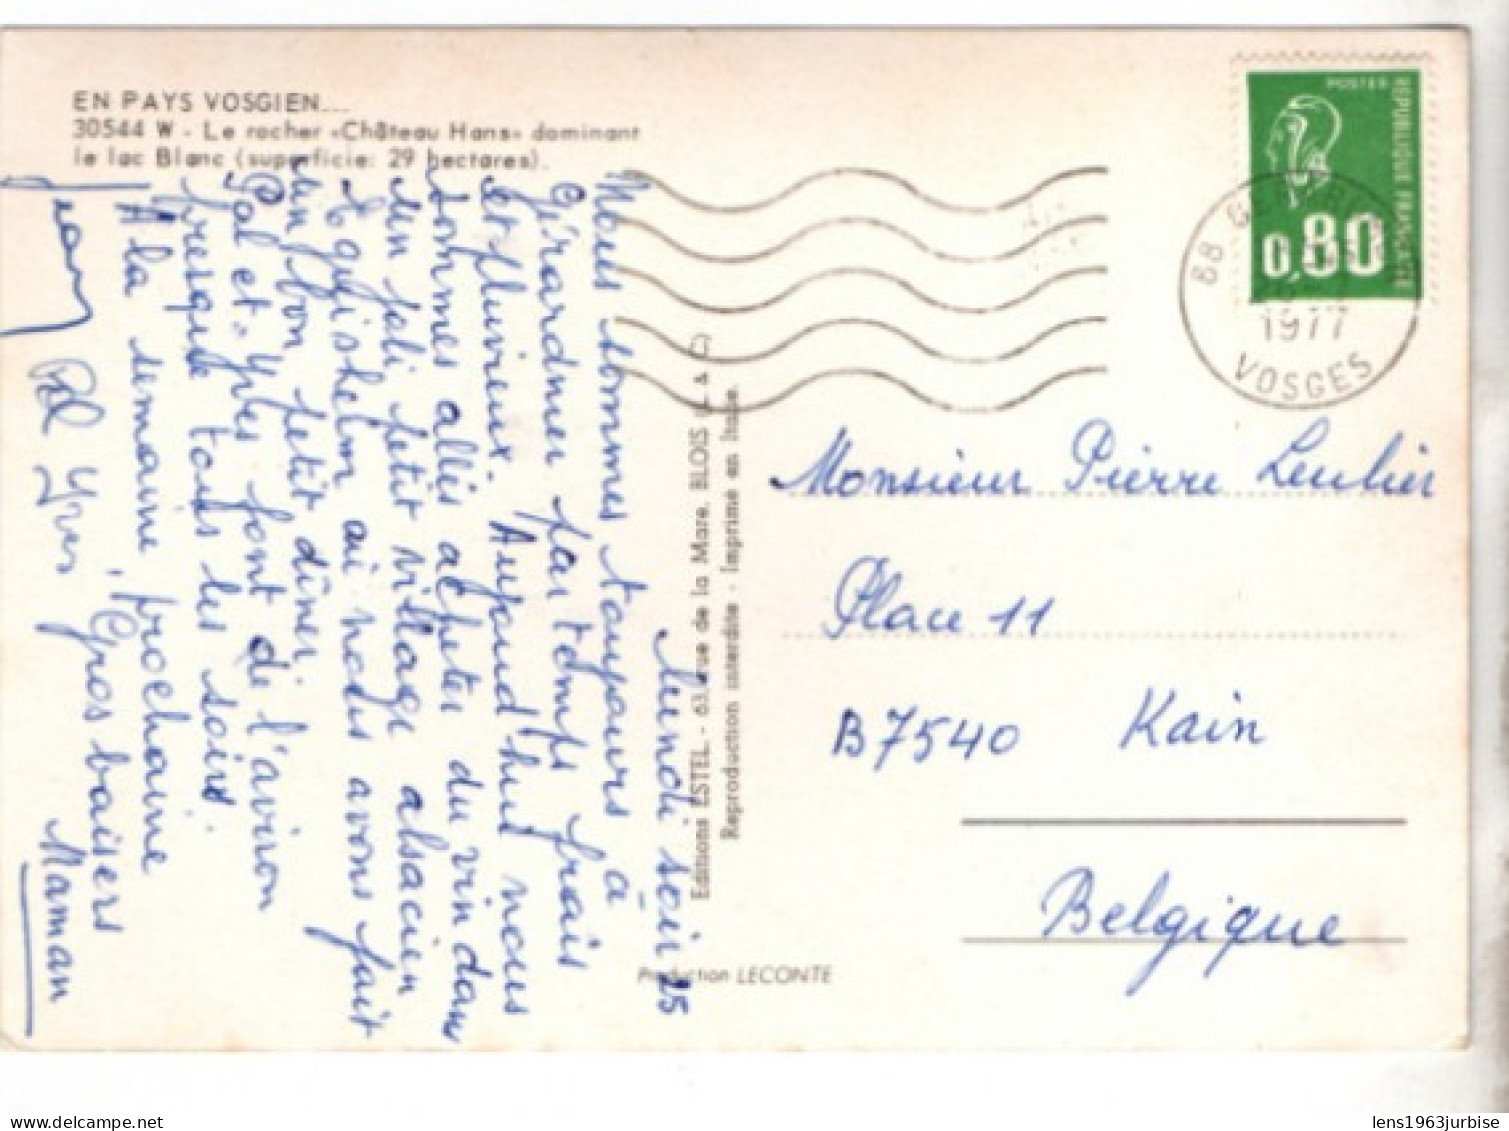 EN PAYS VOSGIEN...
30544 W - Le rocher «Château Hans» dominant
le lac Blanc (superficie: 29 hectares).
lundi soir 25
Nous sommes toujours à
Gérardmer par temps frais
et pluvieux. Aujourd'hui nous
sommes allés acheter du vin dans
un joli petit village alsacien
Eguishelm où nous avons fait
un bon petit dîner.
Pol et Yves font de l'avion
presque tous les soirs.
A la semaine prochaine
Gros baisers
Maman
Jean
Pol Yves
Editions ESTEL - 63, rue de la Mare, BLOIS (L. & C)
Reproduction interdite - Imprimé en Italie.
Production LECONTE
POSTES
REPUBLIQUE FRANÇAISE
0,80
88
1977
VOSGES
Monsieur Pierre Leulier
Place 11
B7540 Kain
Belgique
delcampe.net
lens1963jurbise